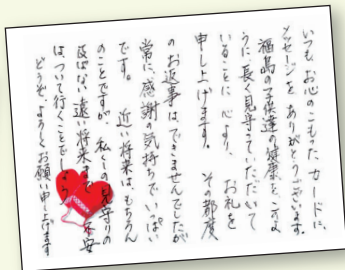 いつも お心のこもった カードに、
メッセージを ありがとうございます。
福島の子供達の健康を このよ
うに、長く見守っていただいて
いることに 心より、 お礼を
申し上げます。 その都度
のお返事は、できませんでしたが
常に、感謝の気持ちでいっぱい
です。 近い将来は、もちろん
のことですが、私くしの見守りの
及ばない遠い将来まで 不安
は、ついて行くことでしょう
どうぞ、よろしくお願い申し上げます